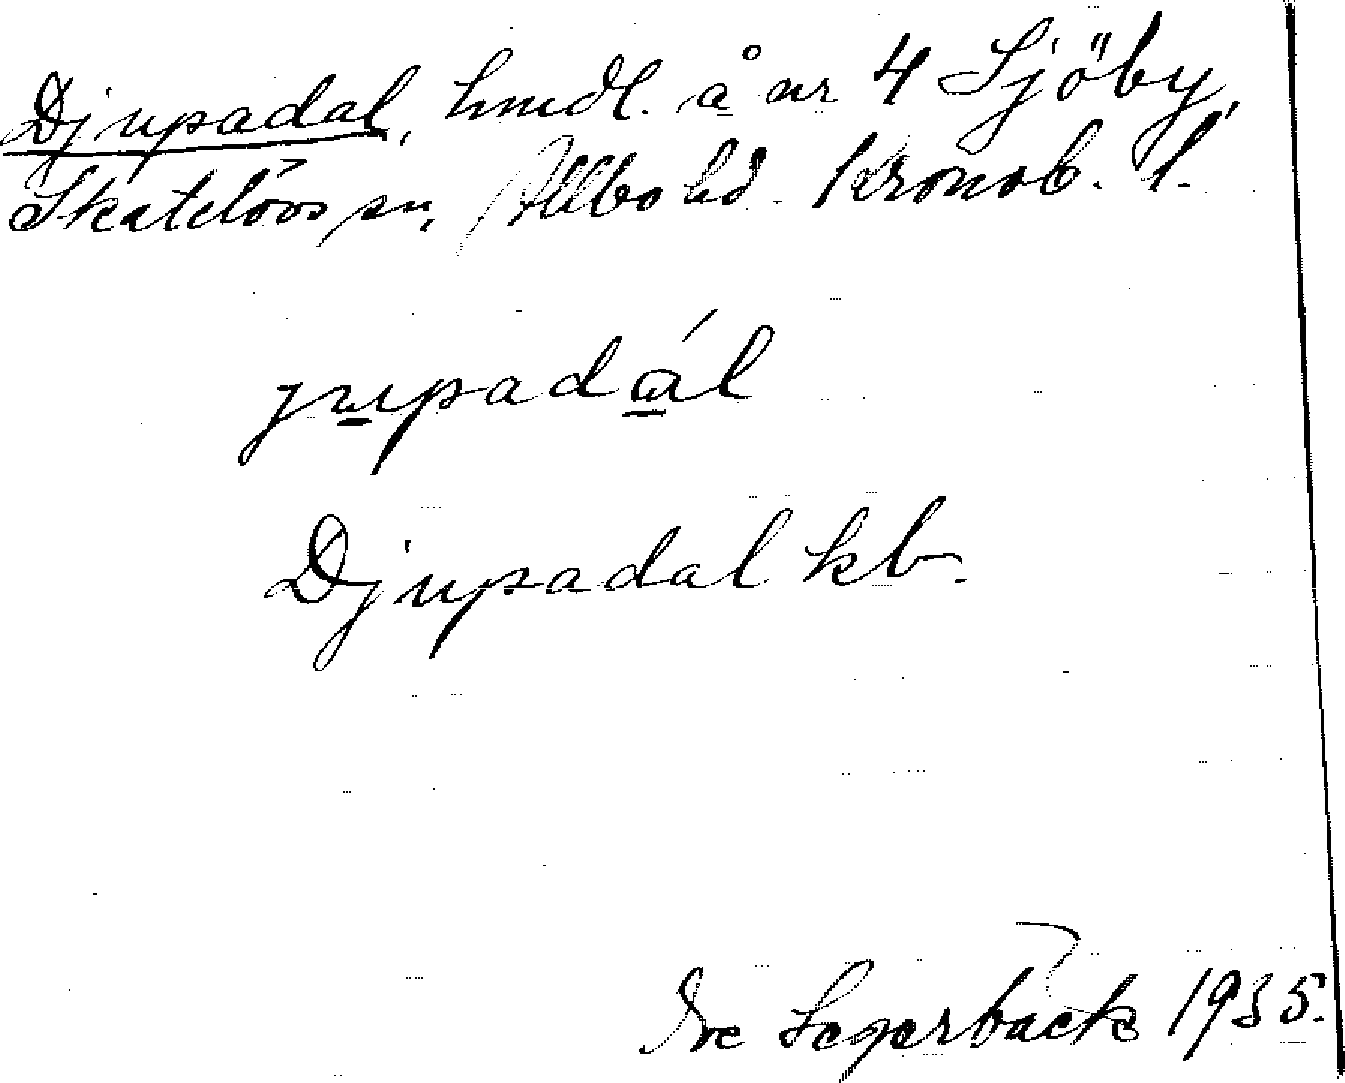 Djupadal, hmdl. å nr 4 Sjöby,
Skatelövs sn, Allbo hd. Kronob. l.
jupadál
Djupadal kb.
Segerbäck 1935.